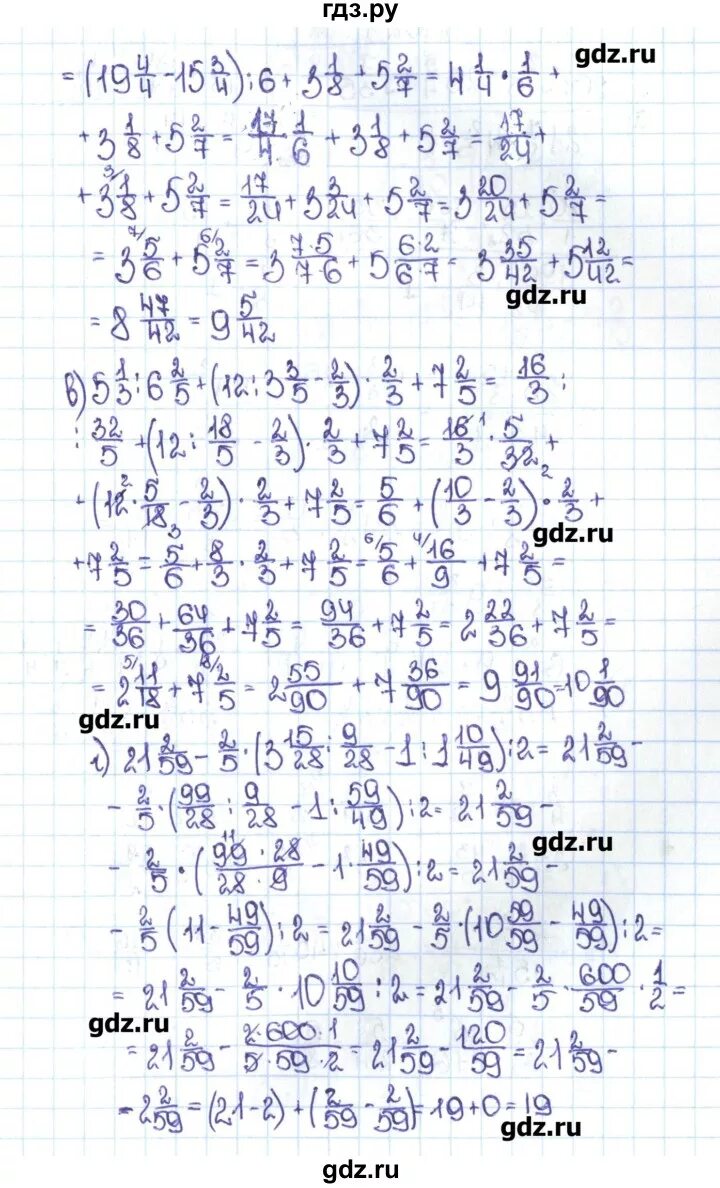 гдз.ру
gdz.ru
= (19 4/4 - 15 3/4) : 6 + 3 1/8 + 5 2/7 = 4 1/4 · 1/6 +
+ 3 1/8 + 5 2/7 = 17/4 · 1/6 + 3 1/8 + 5 2/7 = 17/24 +
+ 3 1/8 + 5 2/7 = 17/24 + 3 3/24 + 5 2/7 = 3 20/24 + 5 2/7 =
= 3 5/6 + 5 2/7 = 3 7·5/7·6 + 5 6·2/6·7 = 3 35/42 + 5 12/42 =
gdz.ru
= 8 47/42 = 9 5/42
в) 5 1/3 : 6 2/5 + (12 : 3 3/5 - 2/3) · 2/3 + 7 2/5 = 16/3 :
: 32/5 + (12 : 18/5 - 2/3) · 2/3 + 7 2/5 = 16/3 · 5/32 +
+ (12 · 5/18 - 2/3) · 2/3 + 7 2/5 = 5/6 + (10/3 - 2/3) · 2/3 +
gdz.ru
+ 7 2/5 = 5/6 + 8/3 · 2/3 + 7 2/5 = 5/6 + 16/9 + 7 2/5 =
= 30/36 + 64/36 + 7 2/5 = 94/36 + 7 2/5 = 2 22/36 + 7 2/5 =
= 2 11/18 + 7 2/5 = 2 55/90 + 7 36/90 = 9 91/90 = 10 1/90
gdz.ru
г) 21 2/59 - 2/5 · (3 15/28 : 9/28 - 1 : 1 10/49) : 2 = 21 2/59 -
- 2/5 · (99/28 : 9/28 - 1 : 59/49) : 2 = 21 2/59 -
gdz.ru
- 2/5 · (99 · 28/28 · 9 - 1 · 49/59) : 2 = 21 2/59 -
- 2/5 (11 - 49/59) : 2 = 21 2/59 - 2/5 · (10 59/59 - 49/59) : 2 =
= 21 2/59 - 2/5 · 10 10/59 : 2 = 21 2/59 - 2/5 · 600/59 · 1/2 =
gdz.ru
= 21 2/59 - 2·600·1/5·59·2 = 21 2/59 - 120/59 = 21 2/59 -
- 2 2/59 = (21 - 2) + (2/59 - 2/59) = 19 + 0 = 19
gdz.ru
gdz.ru